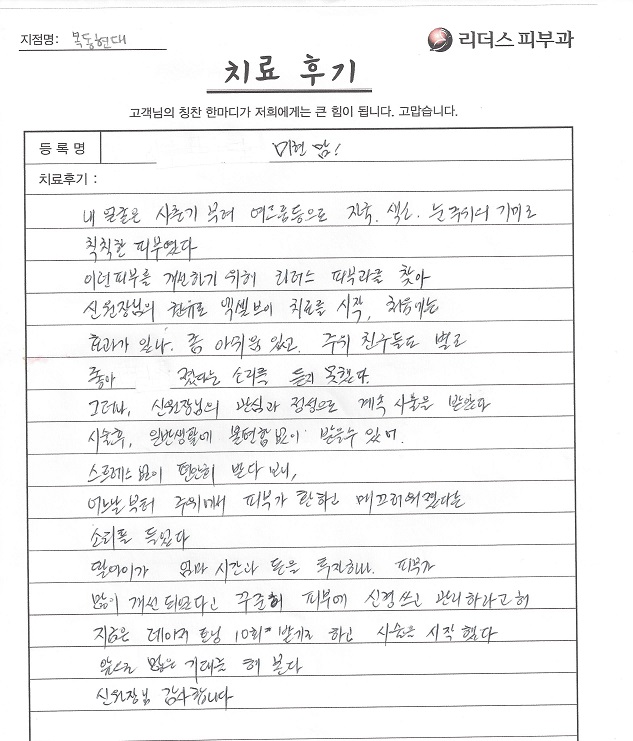 지점명: 목동현대
리더스 피부과
치료 후기
고객님의 칭찬 한마디가 저희에게는 큰 힘이 됩니다. 고맙습니다.
등 록 명
치료후기 :
내 얼굴은 사춘기 부터 여드름등으로 자국. 색소. 눈주위의 기미로
칙칙한 피부였다
이런피부를 개선하기 위해 리더스 피부과를 찾아
신원장님의 권유로 엑셀브이 치료를 시작, 처음에는
효과가 있나. 좀 아쉬움 있고. 주위 친구들도 별로
좋아 졌다는 소리를 듣지 못했다.
그러나, 신원장님의 관심과 정성으로 계속 시술을 받았다
시술후, 일반생활에 불편함 없이 받을수 있어.
스트레스 없이 편안히 받다 보니,
어느날 부터 주위에서 피부가 환하고 매끄러워졌다는
소리를 들었다
딸아이가 엄마 시간과 돈을 투자하니. 피부가
많이 개선 되었다고 꾸준히 피부에 신경쓰고 관리하라고해
지금은 레이저 토닝 10회 받기로 하고 시술을 시작했다
앞으로 많은 기대를 해 본다
신원장님 감사합니다